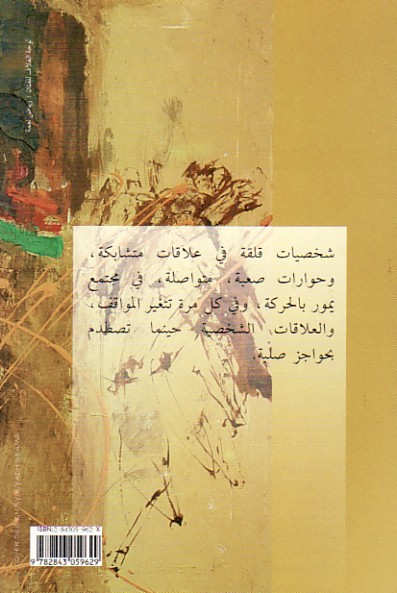 لوحة الغلاف للفنان : رياض نعمة
شخصيات قلقة في علاقات متشابكة،
وحوارات صعبة، متواصلة، في مجتمع
يمور بالحركة. وفي كل مرة تتغير المواقف،
والعلاقات الشخصية حينما تصطدم
بحواجز صلبة.
ISBN:2-84305-962-X
9 782843 059629